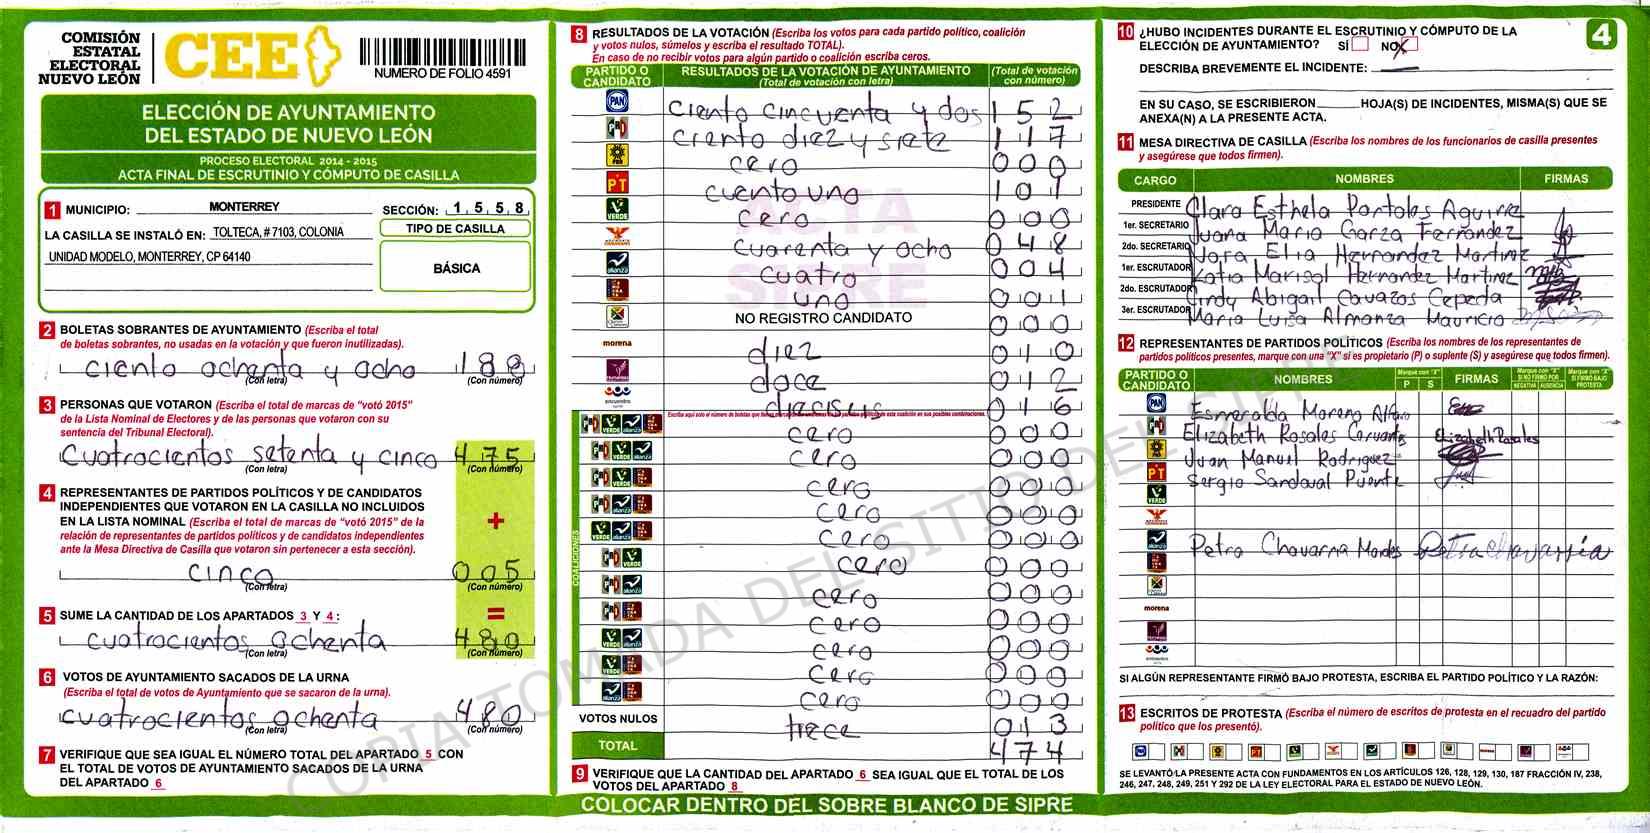 COMISIÓN
ESTATAL
ELECTORAL
NUEVO LEÓN
CEE
NUMERO DE FOLIO 4591
ELECCIÓN DE AYUNTAMIENTO
DEL ESTADO DE NUEVO LEÓN
PROCESO ELECTORAL 2014 - 2015
ACTA FINAL DE ESCRUTINIO Y CÓMPUTO DE CASILLA
1 MUNICIPIO: MONTERREY SECCIÓN: 1 5 5 8
LA CASILLA SE INSTALÓ EN: TOLTECA, # 7103, COLONIA
UNIDAD MODELO, MONTERREY, CP 64140
TIPO DE CASILLA
BÁSICA
2 BOLETAS SOBRANTES DE AYUNTAMIENTO (Escriba el total
de boletas sobrantes, no usadas en la votación y que fueron inutilizadas).
ciento ochenta y ocho 188
(Con letra) (Con número)
3 PERSONAS QUE VOTARON (Escriba el total de marcas de “votó 2015”
de la Lista Nominal de Electores y de las personas que votaron con su
sentencia del Tribunal Electoral).
Cuatrocientos setenta y cinco 475
(Con letra) (Con número)
4 REPRESENTANTES DE PARTIDOS POLÍTICOS Y DE CANDIDATOS
INDEPENDIENTES QUE VOTARON EN LA CASILLA NO INCLUIDOS
EN LA LISTA NOMINAL (Escriba el total de marcas de “votó 2015” de la
relación de representantes de partidos políticos y de candidatos independientes
ante la Mesa Directiva de Casilla que votaron sin pertenecer a esta sección).
+
cinco 005
(Con letra) (Con número)
5 SUME LA CANTIDAD DE LOS APARTADOS 3 Y 4 : =
cuatrocientos ochenta 480
(Con letra) (Con número)
6 VOTOS DE AYUNTAMIENTO SACADOS DE LA URNA
(Escriba el total de votos de Ayuntamiento que se sacaron de la urna).
cuatrocientos ochenta 480
(Con letra) (Con número)
7 VERIFIQUE QUE SEA IGUAL EL NÚMERO TOTAL DEL APARTADO 5 CON
EL TOTAL DE VOTOS DE AYUNTAMIENTO SACADOS DE LA URNA
DEL APARTADO 6
8 RESULTADOS DE LA VOTACIÓN (Escriba los votos para cada partido político, coalición
y votos nulos, súmelos y escriba el resultado TOTAL).
En caso de no recibir votos para algún partido o coalición escriba ceros.
PARTIDO O CANDIDATO RESULTADOS DE LA VOTACIÓN DE AYUNTAMIENTO (Total de votación con letra) (Total de votación con número)
PAN ciento cincuenta y dos 152
PRD ciento diez y siete 117
PRD cero 000
PT cuento uno 101
VERDE cero 000
cuarenta y ocho 048
alianza cuatro 004
uno 001
NO REGISTRO CANDIDATO 000
morena diez 010
doce 012
encuentro dieciseis 016
COALICIONES
cero 000
cero 000
cero 000
cero 000
cero 000
cero 000
cero 000
cero 000
cero 000
cero 000
cero 000
VOTOS NULOS trece 013
TOTAL 474
9 VERIFIQUE QUE LA CANTIDAD DEL APARTADO 6 SEA IGUAL QUE EL TOTAL DE LOS
VOTOS DEL APARTADO 8
COLOCAR DENTRO DEL SOBRE BLANCO DE SIPRE
ACTA
SIPRE
COPIA TOMADA DEL SITIO DEL SIPRE
4
10 ¿HUBO INCIDENTES DURANTE EL ESCRUTINIO Y CÓMPUTO DE LA
ELECCIÓN DE AYUNTAMIENTO? SÍ NO X
DESCRIBA BREVEMENTE EL INCIDENTE:
EN SU CASO, SE ESCRIBIERON HOJA(S) DE INCIDENTES, MISMA(S) QUE SE
ANEXA(N) A LA PRESENTE ACTA.
11 MESA DIRECTIVA DE CASILLA (Escriba los nombres de los funcionarios de casilla presentes
y asegúrese que todos firmen).
CARGO NOMBRES FIRMAS
PRESIDENTE Clara Esthela Portales Aguirre
1er. SECRETARIO Juana Maria Garza Fernandez
2do. SECRETARIO Nora Elia Hernandez Martinez
1er. ESCRUTADOR Katia Marisol Hernandez Martinez
2do. ESCRUTADOR Cindy Abigail Cavazos Cepeda
3er. ESCRUTADOR Maria Luisa Almanza Mauricio
12 REPRESENTANTES DE PARTIDOS POLÍTICOS (Escriba los nombres de los representantes de
partidos políticos presentes, marque con una "X" si es propietario (P) o suplente (S) y asegúrese que todos firmen).
PARTIDO O CANDIDATO NOMBRES Marque con "X" P S FIRMAS Marque con "X" SI NO FIRMÓ POR NEGATIVA AUSENCIA Marque con "X" SI FIRMÓ BAJO PROTESTA
PAN Esmeralda Moreno Alfaro
Elizabeth Rosales Cervantes Elizabeth Rosales
PRD Juan Manuel Rodriguez
PT Sergio Sandoval Puente
VERDE
alianza Petra Chavarria Petra chavarria
morena
SI ALGÚN REPRESENTANTE FIRMÓ BAJO PROTESTA, ESCRIBA EL PARTIDO POLÍTICO Y LA RAZÓN:
13 ESCRITOS DE PROTESTA (Escriba el número de escritos de protesta en el recuadro del partido
político que los presentó).
SE LEVANTÓ LA PRESENTE ACTA CON FUNDAMENTOS EN LOS ARTÍCULOS 126, 128, 129, 130, 187 FRACCIÓN IV, 238,
246, 247, 248, 249, 251 Y 292 DE LA LEY ELECTORAL PARA EL ESTADO DE NUEVO LEÓN.